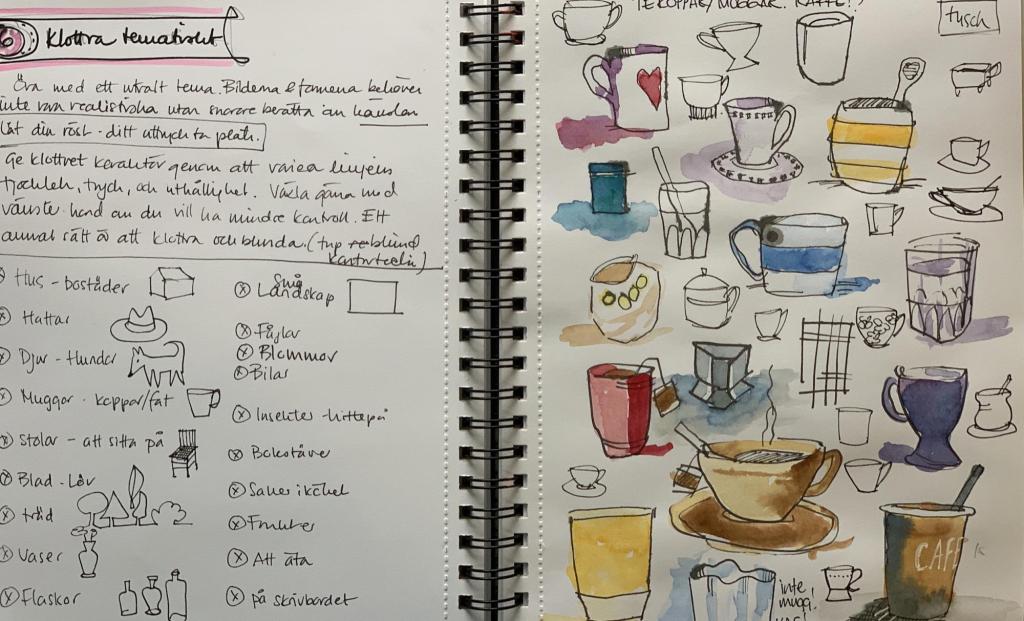 6
Klottra tematiskt
Öva med ett utvalt tema. Bilderna & formerna behöver
inte vara realistiska utan snarare berätta om känslan
Låt din röst - ditt uttryck ta plats.
Ge klottret karaktär genom att variera linjens
tjocklek, tryck, och uthållighet. Växla gärna med
vänster hand om du vill ha mindre kontroll. Ett
annat sätt är att klottra och blunda. (typ
blind
konturteckn)
Hus - bostäder
Hattar
Djur - Hundar
Muggor - koppar/fat
Stolar - att sitta på
Blad - Löv
träd
Vaser
Flaskor
Små
Landskap
Fåglar
Blommor
Bilar
Insekter - hittepå
Bokstäver
Saker i köket
Frukter
Att äta
På skrivbordet
TEKOPPAR/MUGGAR. KAFFE!?
tusch
CAFE
inte
mugg!